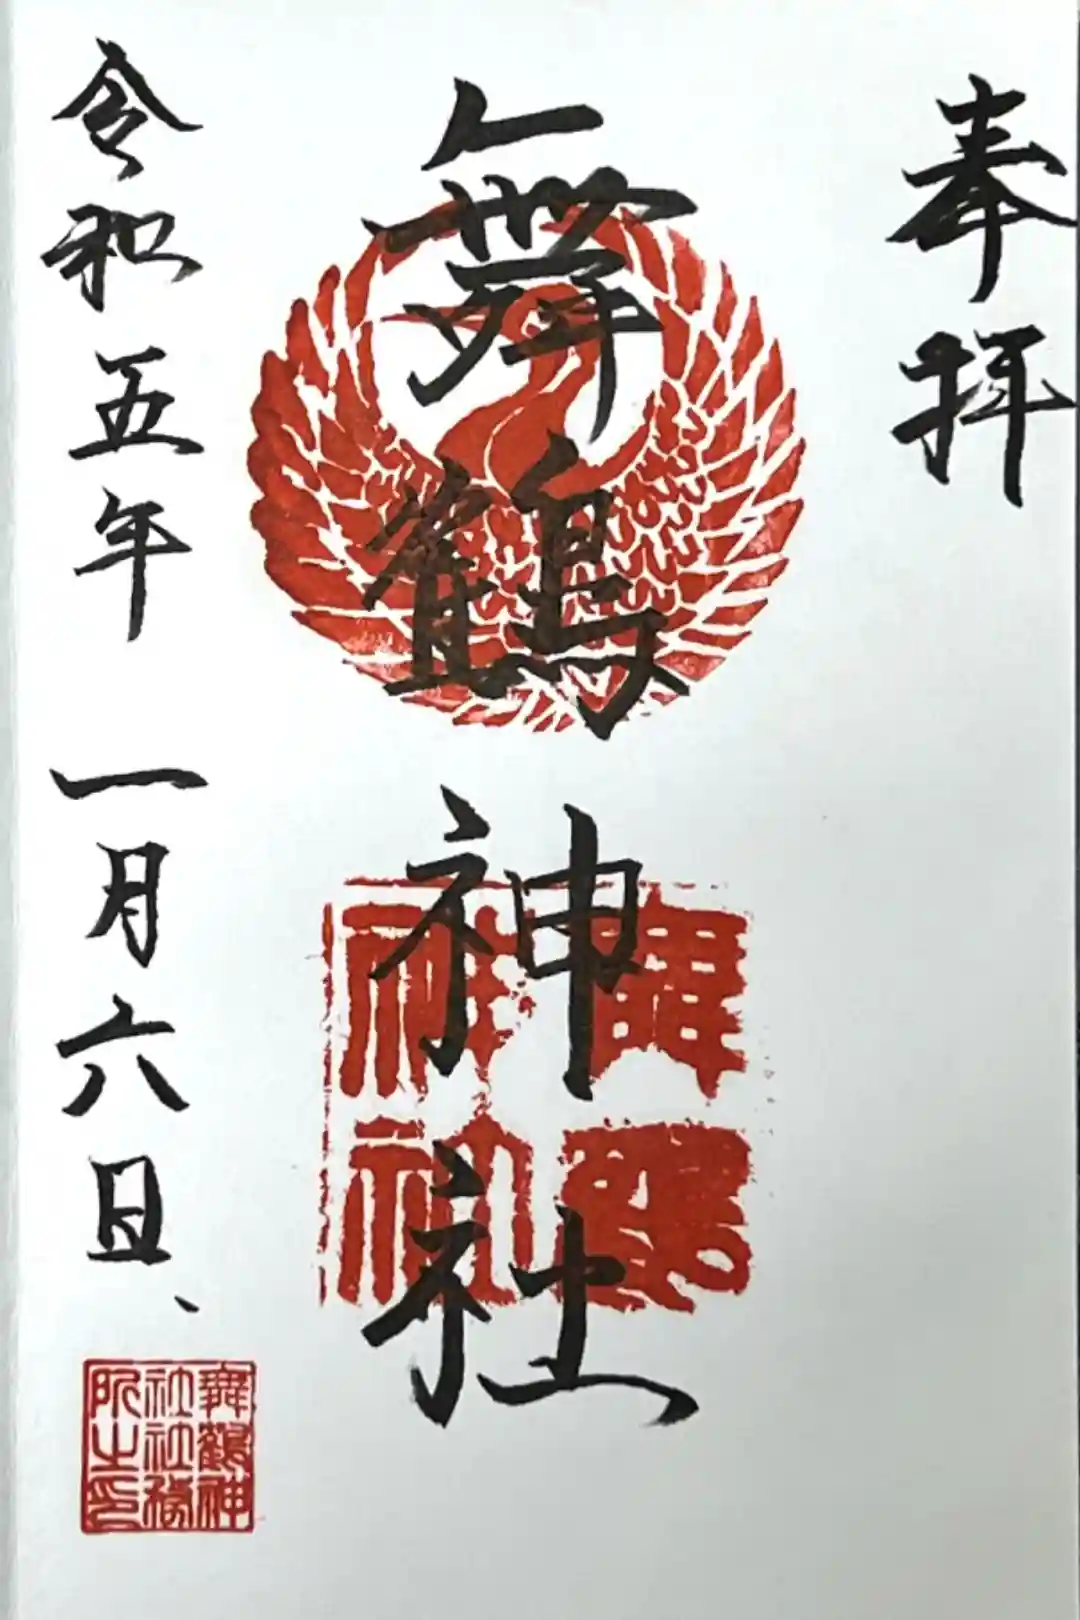 奉拝
舞鶴神社
舞鶴神社
令和五年 一月六日、
舞鶴神
社社務
所之印